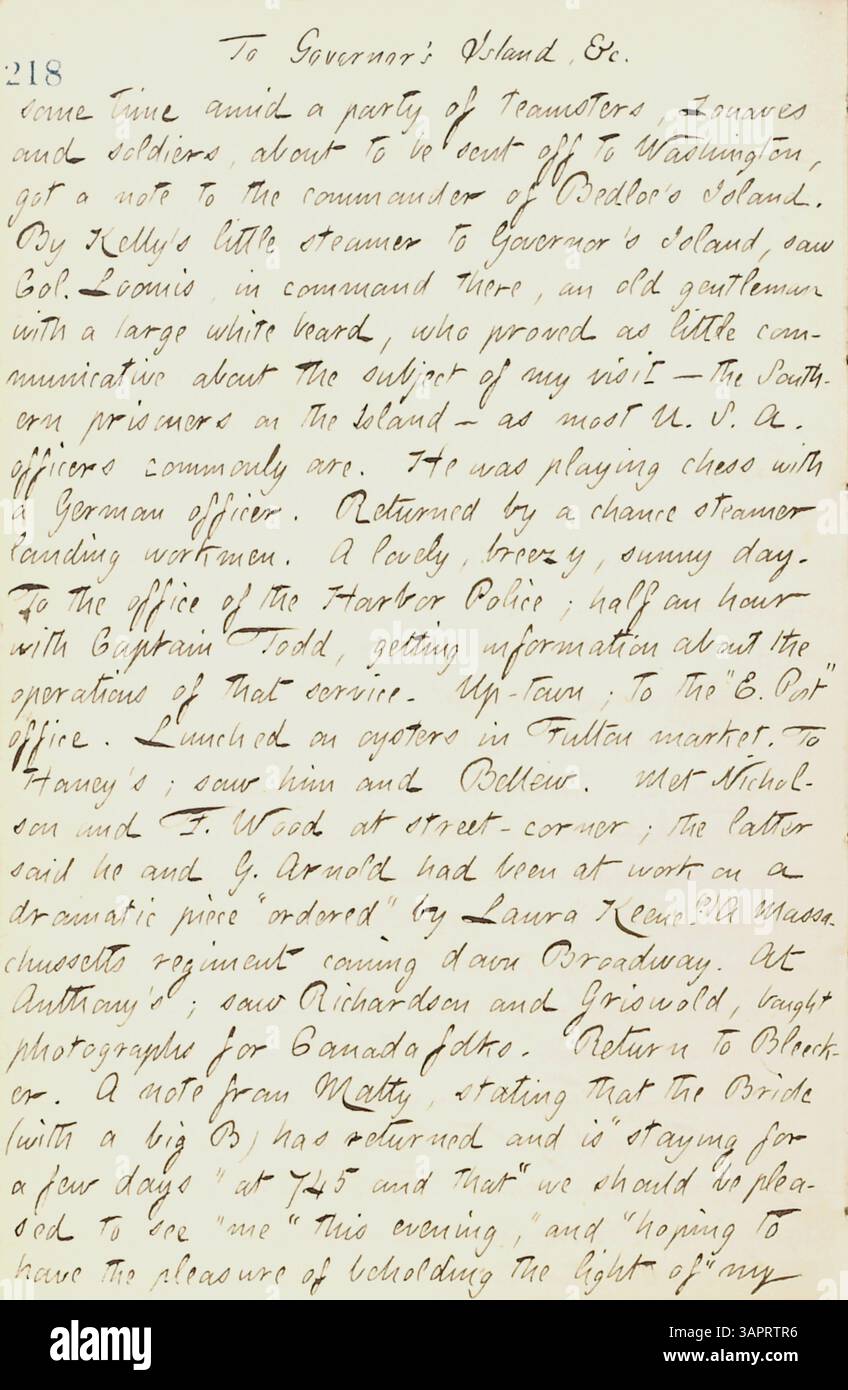 To Governor's Island, &c.
218
some time amid a party of teamsters, Zouaves
and soldiers, about to be sent off to Washington,
got a note to the commander of Bedloe's Island.
By Kelly's little steamer to Governor's Island, saw
Col. Loomis in command there, an old gentleman
with a large white beard, who proved as little com-
municative about the subject of my visit — the South-
ern prisoners on the Island — as most U. S. A.
officers commonly are. He was playing chess with
a German officer. Returned by a chance steamer
landing workmen. A lovely, breezy, sunny day.
To the office of the Harbor Police; half an hour
with Captain Todd, getting information about the
operations of that service. Up-town; to the "E. Post"
office. Lunched on oysters in Fulton market. To
Haney's; saw him and Bellew. Met Nichol-
son and F. Wood at street-corner; the latter
said he and G. Arnold had been at work on a
dramatic piece "ordered" by Laura Keene. A Massa-
chussetts regiment coming down Broadway. At
Anthony's; saw Richardson and Griswold, bought
photographs for Canada folks. Return to Bleeck-
er. A note from Matty, stating that the Bride
(with a big B) has returned and is "staying for
a few days" at 745 and that "we should be plea-
sed to see" me "this evening," and "hoping to
have the pleasure of beholding the light of" my
alamy
alamy
alamy
alamy
alamy
Image ID: 3APRTR6
www.alamy.com